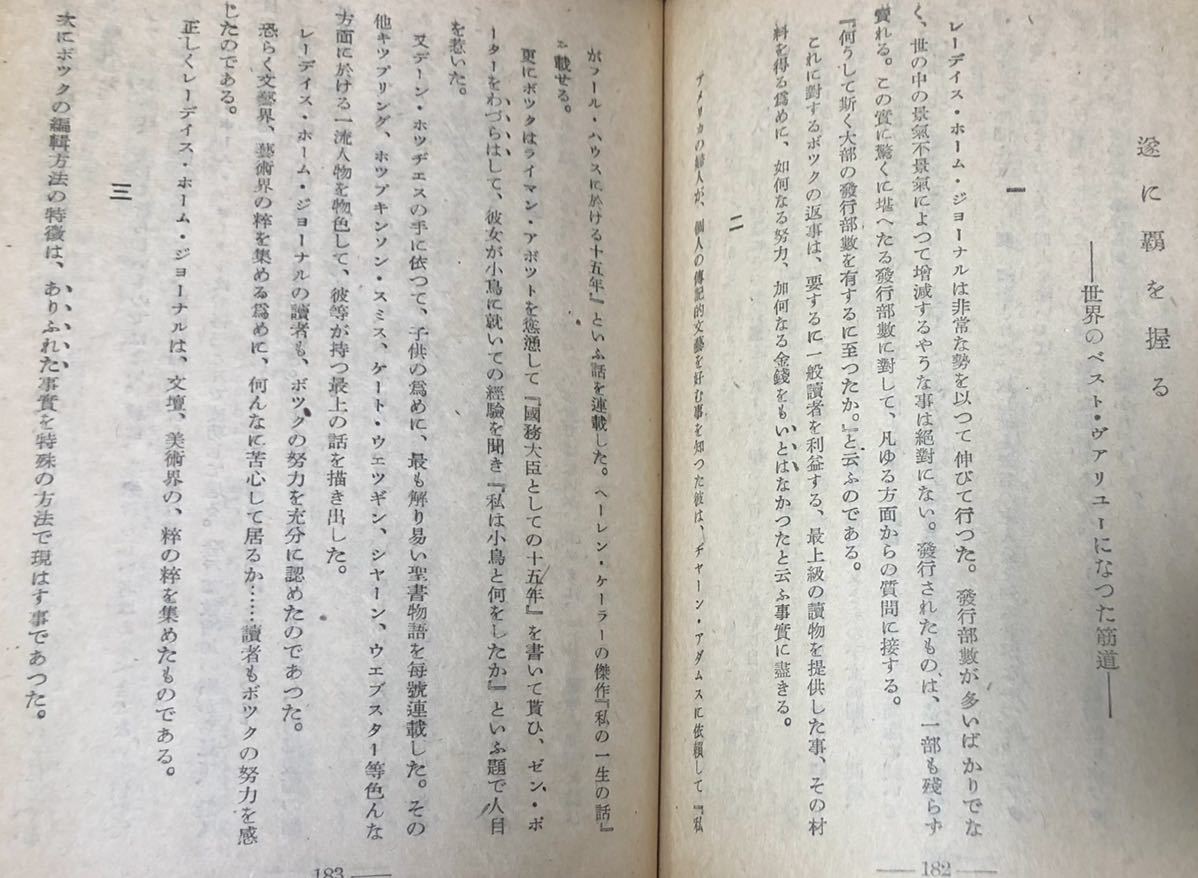 遂に覇を握る
――世界のベスト・ヴアリユーになつた筋道――
一
レーデイス・ホーム・ジヨーナルは非常な勢を以つて伸びて行つた。發行部數が多いばかりでな
く、世の中の景氣不景氣によつて増減するやうな事は絶對にない。發行されたものは、一部も殘らず
賣れる。この實に驚くに堪へたる發行部數に對して、凡ゆる方面からの質問に接する。
『何うして斯く大部の發行部數を有するに至つたか。』と云ふのである。
これに對するボツクの返事は、要するに一般讀者を利益する、最上級の讀物を提供した事、その材
料を得る爲めに、如何なる努力、如何なる金錢をもいとはなかつたと云ふ事實に盡きる。
二
アメリカの婦人が、個人の傳記的文藝を好む事を知つた彼は、ヂャーン・アダムスに依頼して『私
がフール・ハウスに於ける十五年』といふ話を連載した。ヘーレン・ケーラーの傑作『私の一生の話』
を載せる。
更にボツクはライマン・アボツトを慫慂して『國務大臣としての十五年』を書いて貰ひ、ゼン・ポ
ーターをわづらはして、彼女が小鳥に就いての經驗を聞き『私は小鳥と何をしたか』といふ題で人目
を惹いた。
又デーン・ホツヂエスの手に依つて、子供の爲めに、最も解り易い聖書物語を毎號連載した。その
他キツプリング、ホツプキンソン・スミス、ケート・ウエツギン、シヤーン、ウエブスター等色んな
方面に於ける一流人物を物色して、彼等が持つ最上の話を描き出した。
レーデイス・ホーム・ジヨーナルの讀者も、ボツクの努力を充分に認めたのであつた。
恐らく文藝界、藝術界の粹を集める爲めに、何んなに苦心して居るか……讀者もボツクの努力を感
じたのである。
正しくレーデイス・ホーム・ジヨーナルは、文壇、美術界の、粹の粹を集めたものである。
三
次にボツクの編輯方法の特徴は、ありふれた事實を特殊の方法で現はす事であつた。
―― 182 ――
183 ――